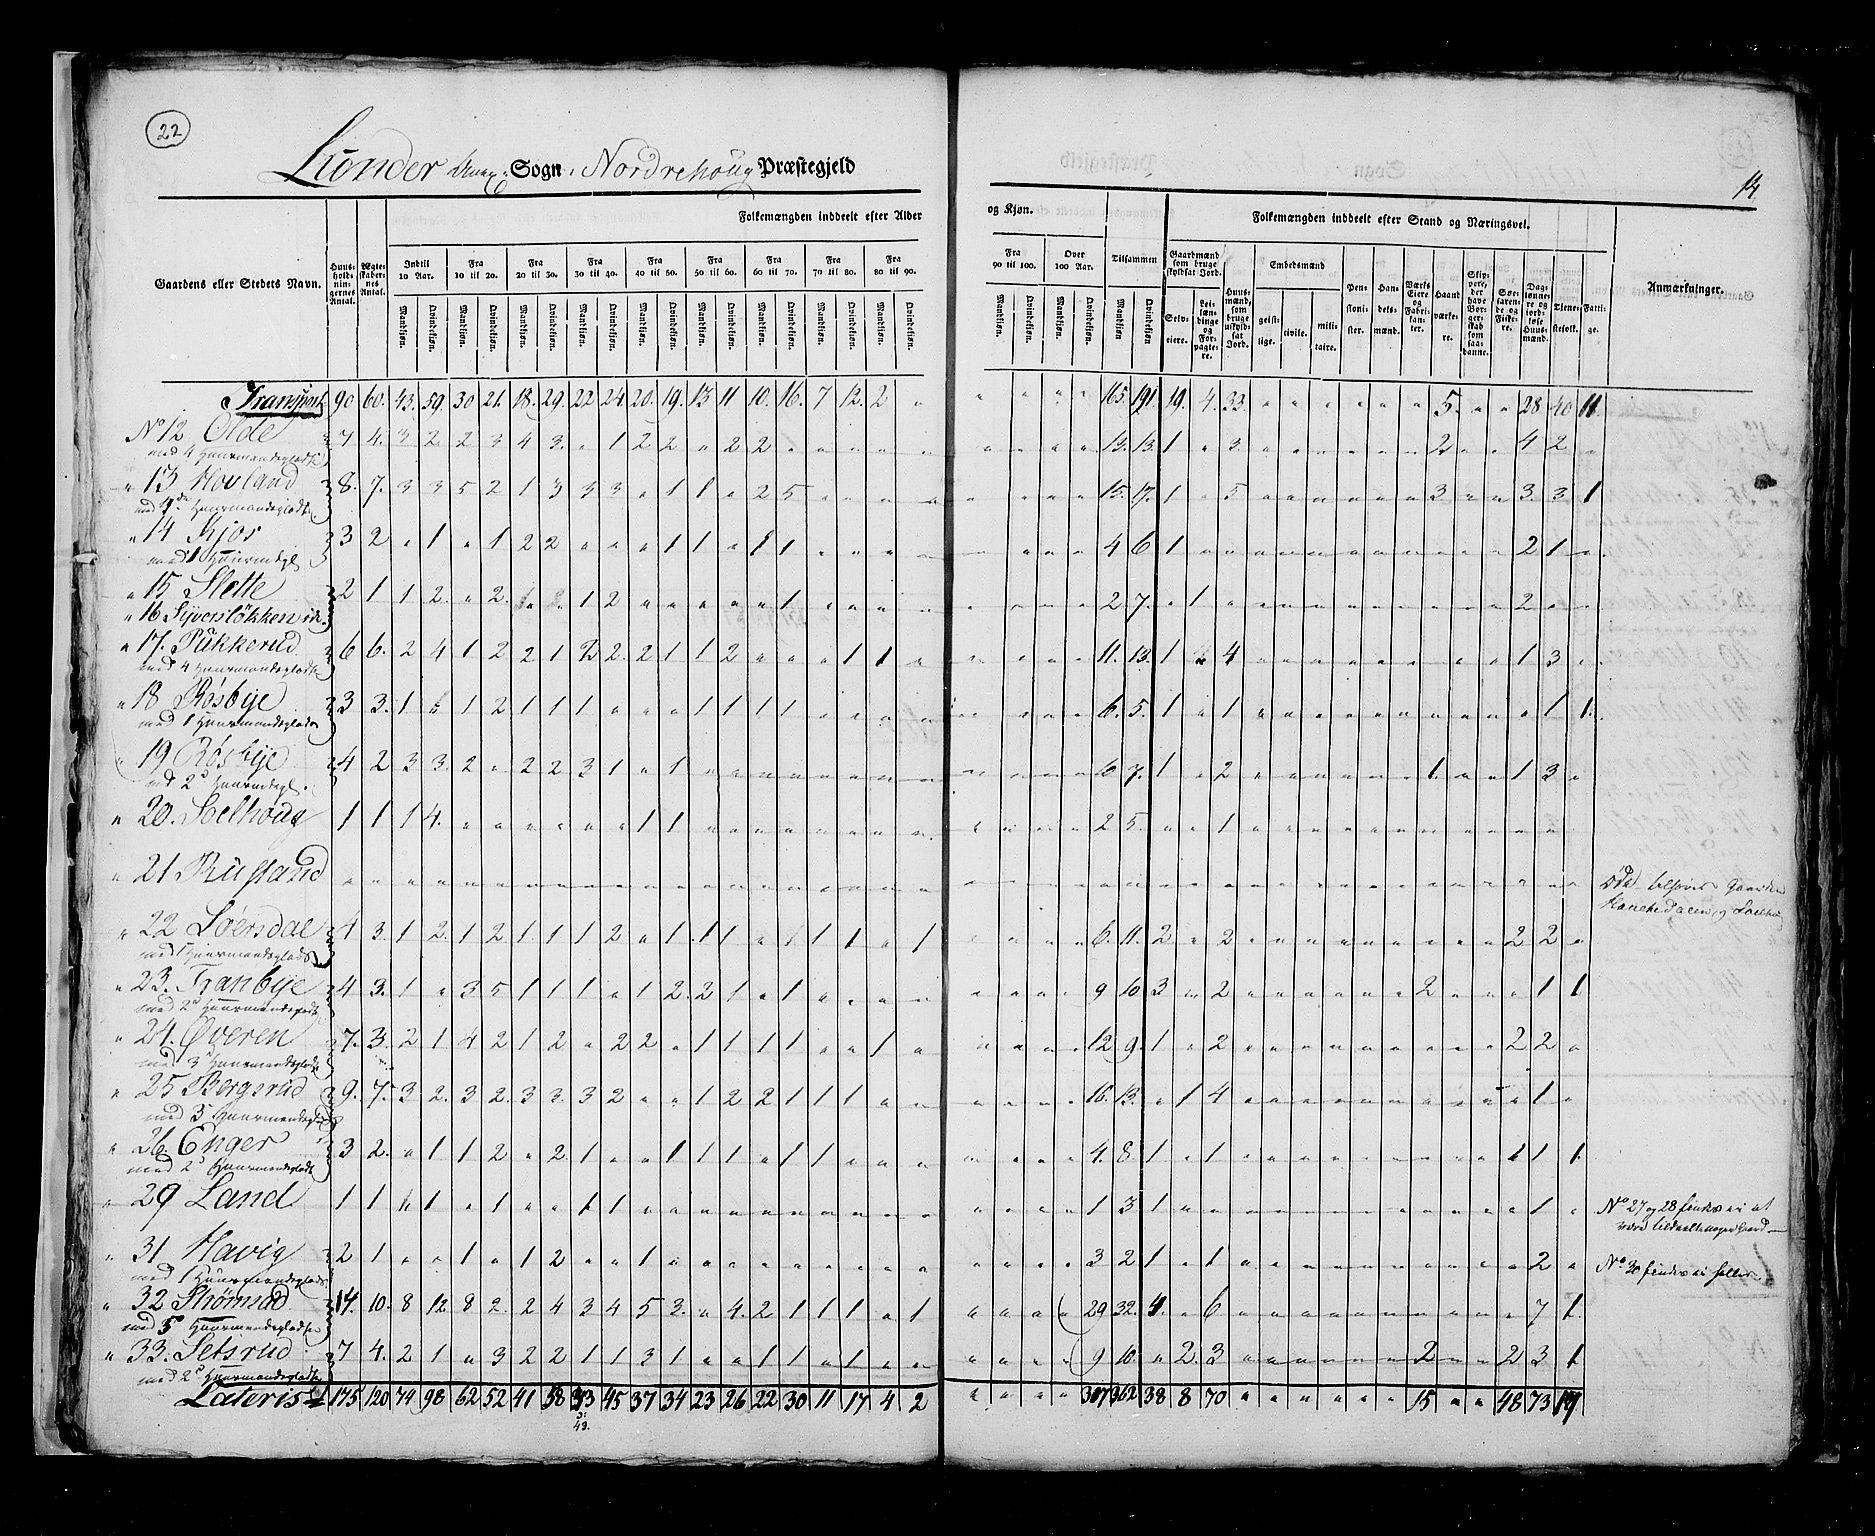 22
Lunder Anex Sogn i Nordrehoug Præstegjeld
14
Folkemængden inddeelt efter Alder og Kjøn.
Folkemængden inddeelt efter Stand og Næringsvei.
Gaardens eller Stedets Navn.
Huusholdningernes Antal.
Ægteskabernes Antal.
Indtil 10 Aar.
Fra 10 til 20.
Fra 20 til 30.
Fra 30 til 40.
Fra 40 til 50.
Fra 50 til 60.
Fra 60 til 70.
Fra 70 til 80.
Fra 80 til 90.
Fra 90 til 100.
Over 100 Aar.
Tilsammen
Mandkjøn. Qvindekjøn.
Gaardmænd som bruge skyldsat Jord.
Selveiere.
Leilændinge og Forpagtere.
Huusmænd, som bruge uskyldsat Jord.
Embedsmænd
geistlige. civile. militaire.
Pensionister.
Handelsmænd.
Værks Eiere og Fabrikanter.
Haandværkere.
Skippere, der have Borgerskab som saadanne.
Søefarende og Fiskere.
Daglønnere og jordløse Huusmænd.
Tjenestefolk.
Fattige.
Anmærkninger.
Transport 90 60. 43. 59. 30 21. 18. 29. 22 24 20. 19. 13 11 10. 16. 7 12. 2 165. 191. 19. 4. 33. 5. 28 40 11.
No 12 Olde 7 4. 3 2 2 3 4 3. 1 2 2 2 2 13. 13. 1 3. 2 4 2
med 4 Huusmandspladse
13 Hovland 8. 7. 3 3 5 2 1 3 3 3 1 1 2 5 15. 17. 1 5 3 3. 3 1
14 Kjos 3 2 1 1 2 2 1 1 1 1 4 6 1 2 1
med 1 Huusmdspl
15 Slette 2 1 1 2. 2. 1 2 1 2. 7. 1 2
16 Syversløkken
17. Pukkerud 6 6. 2 4 1 2 2 1 2 2. 2 1 1 2 1 1 11. 13. 1 4 1 3
med 4 Huusmandspladse
18 Røsbye 3 3. 1 1 2 1 1 1 1 1 1 1 6. 5. 1 1 1 1.
med 1 Huusmandsplads
19 Røsbye 4 2 3 3. 2 2 2 3 1 1 6 7. 1 2 1 1 3
med 2 Huusmdspl.
20. Soelhoug 1 1 1 4. 1 1 2 5. 1
21 Rustand
22 Soersdal 4 3. 1 2. 1 2 1. 1 1 2 1 1 1 1 1 1 1 6. 11. 2 2 2 2
med 1 Huusmandsplads
23. Tranbye 4 3. 1 3 5 1 1 1 1 2. 2 1 1 9 10 3 2 2 1 1
med 2 Huusmandspladse
24. Øveren 7. 3. 2 1 4 2 1 2 2 2 1 1 1 1 1 12 9. 1 2 2 2
med 3 Huusmandspladse
25 Bergsrud 9. 7. 3 2. 3 2. 3 3. 3 2 1 2 2 1 1 1 16. 13. 1 4 1
med 3 Huusmandspl
26. Enger 3 2. 1 1 2 2. 1 1 1 1 1 1 1 4. 8 1 1 1 1 1
med 2 Huusmandspladse
29 Land 1 1 1 1 1 1 1 3 1 1
31 Havig 2 1 1 1 2 1 3 2 1 1 2
med 1 Huusmandsplads
32 Strømsød 14. 10. 8 12. 8 2. 2 4 3 4 5 3. 4. 2 1 1 1 1 29 32. 4. 6 7 1
med 5 Huusmandspladse
33. Setsrud 7 4. 2 1 3 2 2 1 1 3 1 1 1 1 9 10. 2. 3 2 2 3 1
med 2 Huusmandspladse
Lateris 175 120 74 98 62 52 41 58 45 37 34 23 26 22 30 11 17 4 2 362 38 8 70 15 48 73
43.
No 27 og 28 findes ei at
No 30 findes ei heller